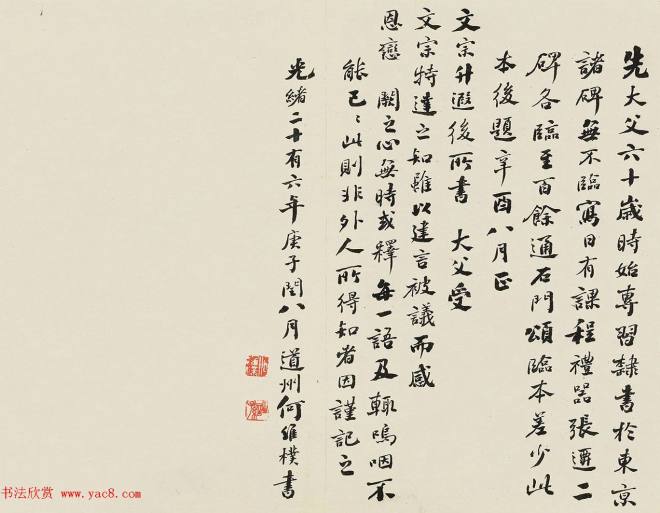 先大父六十歲時始專習隸書於東京
諸碑無不臨寫日有課程禮器張遷二
碑各臨至百餘通石門頌臨本差少此
本後題辛酉八月正
文宗升遐後所書　大父受
文宗特達之知雖以建言被議而感
恩戀　闕之心無時或釋每一語及輒嗚咽不
能已〻此則非外人所得知者因謹記之
光緒二十有六年庚子閏八月道州何維樸書
书法欣赏 www.yac8.com